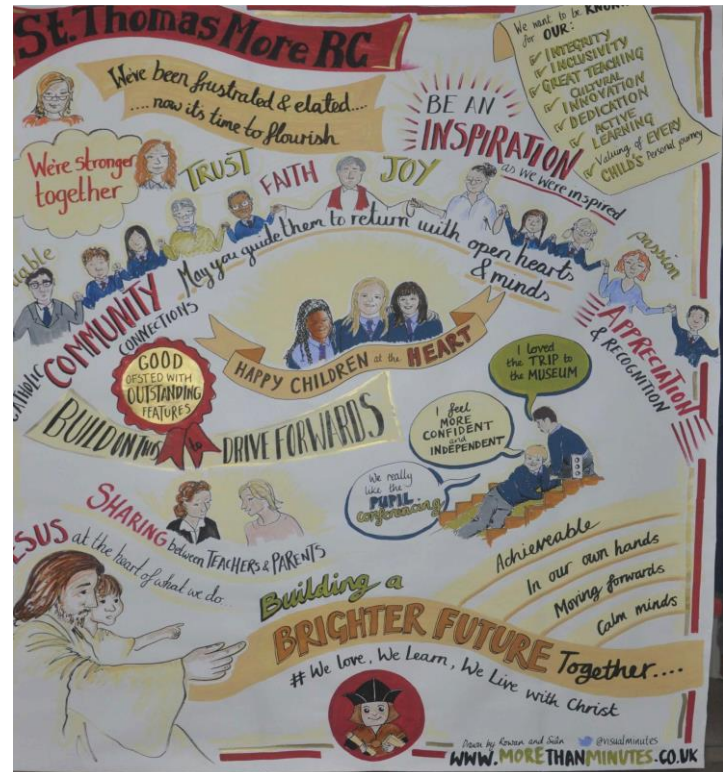 St. Thomas More RC
We've been frustrated & elated....
.... now it's time to flourish
We want to be KNOWN
for OUR:
INTEGRITY
INCLUSIVITY
GREAT TEACHING
CULTURAL
INNOVATION
DEDICATION
ACTIVE
LEARNING
Valuing of EVERY
CHILD'S Personal journey
BE AN
INSPIRATION
as we were inspired
We're stronger
together
TRUST
FAITH
JOY
passion
May you guide them to return with open hearts
& minds
CATHOLIC
COMMUNITY
CONNECTIONS
APPRECIATION
& RECOGNITION
HAPPY CHILDREN at the HEART
GOOD
OFSTED WITH
OUTSTANDING
FEATURES
BUILD ON THIS to DRIVE FORWARDS
I loved
the TRIP to
the MUSEUM
I feel
MORE
CONFIDENT
and
INDEPENDENT
We really
like the
PUPIL
Conferencing
SHARING between TEACHERS & PARENTS
JESUS at the heart of what we do...
Achieveable
In our own hands
Moving forwards
Calm minds
Building a
BRIGHTER FUTURE Together....
# We love, We Learn, We Live with Christ
Drawn by Rowan and Siân
@visualminutes
WWW.MORETHANMINUTES.CO.UK